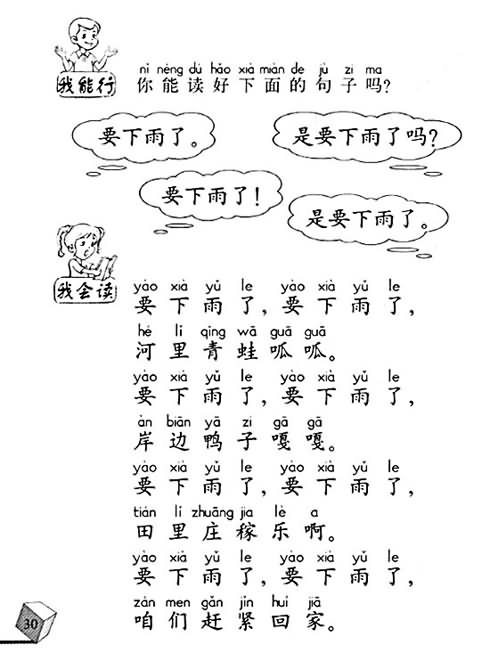 nǐ néng dú hǎo xià miàn de jù zi ma
我能行 你能读好下面的句子吗?
要下雨了。 是要下雨了吗?
要下雨了! 是要下雨了。
我会读
yào xià yǔ le yào xià yǔ le
要下雨了,要下雨了,
hé lǐ qīng wā guā guā
河里青蛙呱呱。
yào xià yǔ le yào xià yǔ le
要下雨了,要下雨了,
àn biān yā zi gā gā
岸边鸭子嘎嘎。
yào xià yǔ le yào xià yǔ le
要下雨了,要下雨了,
tián lǐ zhuāng jia lè a
田里庄稼乐啊。
yào xià yǔ le yào xià yǔ le
要下雨了,要下雨了,
zán men gǎn jǐn huí jiā
咱们赶紧回家。
30